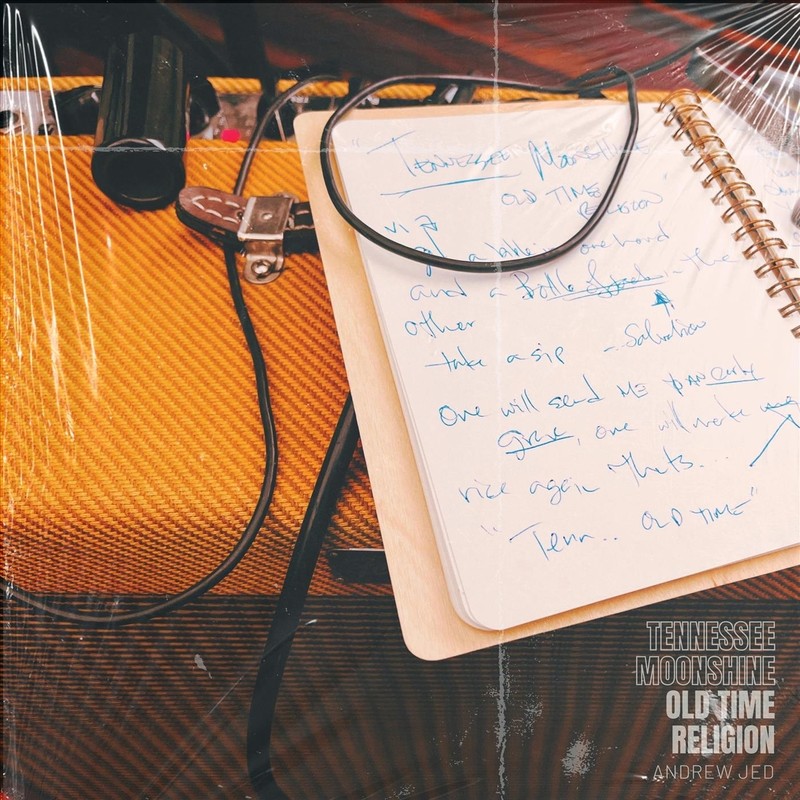 "TENNESSEE MOONSHINE
OLD TIME
RELIGION
got a bible in one hand
and a Bottle of in the
other
take a sip - Salvation
One will send me to an early
Grave, one will make
rise again Thats...
"Tenn.. OLD TIME"
TENNESSEE
MOONSHINE
OLD TIME
RELIGION
ANDREW JED